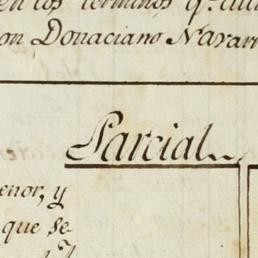 en los terminos q.e
on Donaciano Navarr
Parcial
enor, y
que se